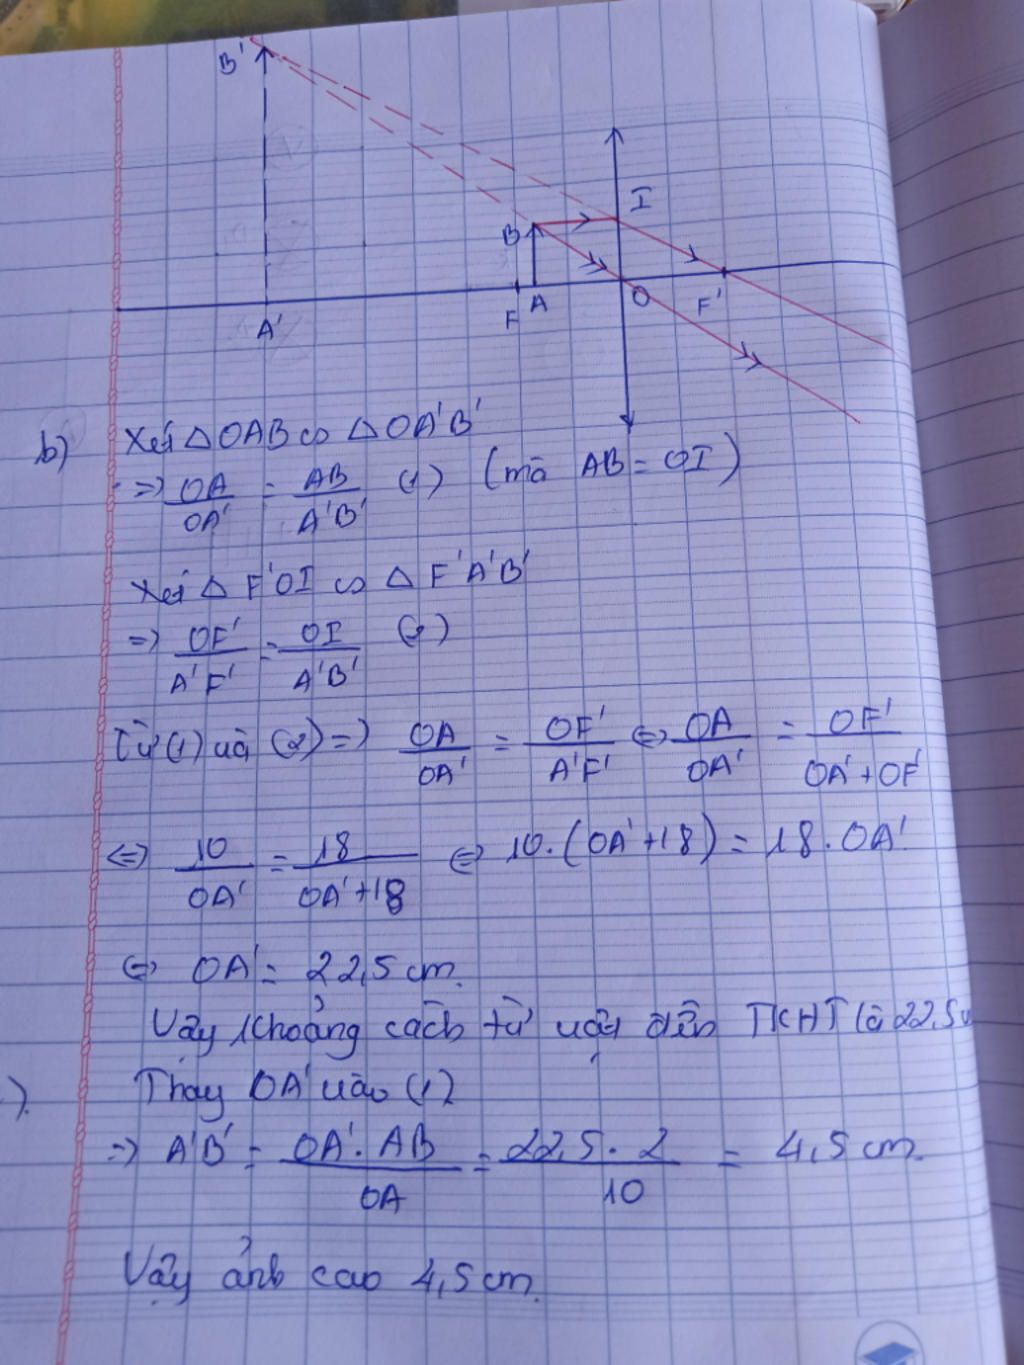 B'
I
B
A'
F
A
O
F'
b) Xét △OAB ∽ △OA'B'
=> OA/OA' = AB/A'B' (1) (mà AB = OI)
Xét △F'OI ∽ △F'A'B'
=> OF'/A'F' = OI/A'B' (2)
Từ (1) và (2) => OA/OA' = OF'/A'F' <=> OA/OA' = OF'/OA'+OF'
<=> 10/OA' = 18/OA'+18 <=> 10.(OA'+18) = 18.OA'
<=> OA' = 22,5 cm.
Vậy khoảng cách từ vật đến TKHT là 22,5
). Thay OA' vào (1)
=> A'B' = OA'.AB/OA = 22,5.2/10 = 4,5 cm.
Vậy ảnh cao 4,5 cm.